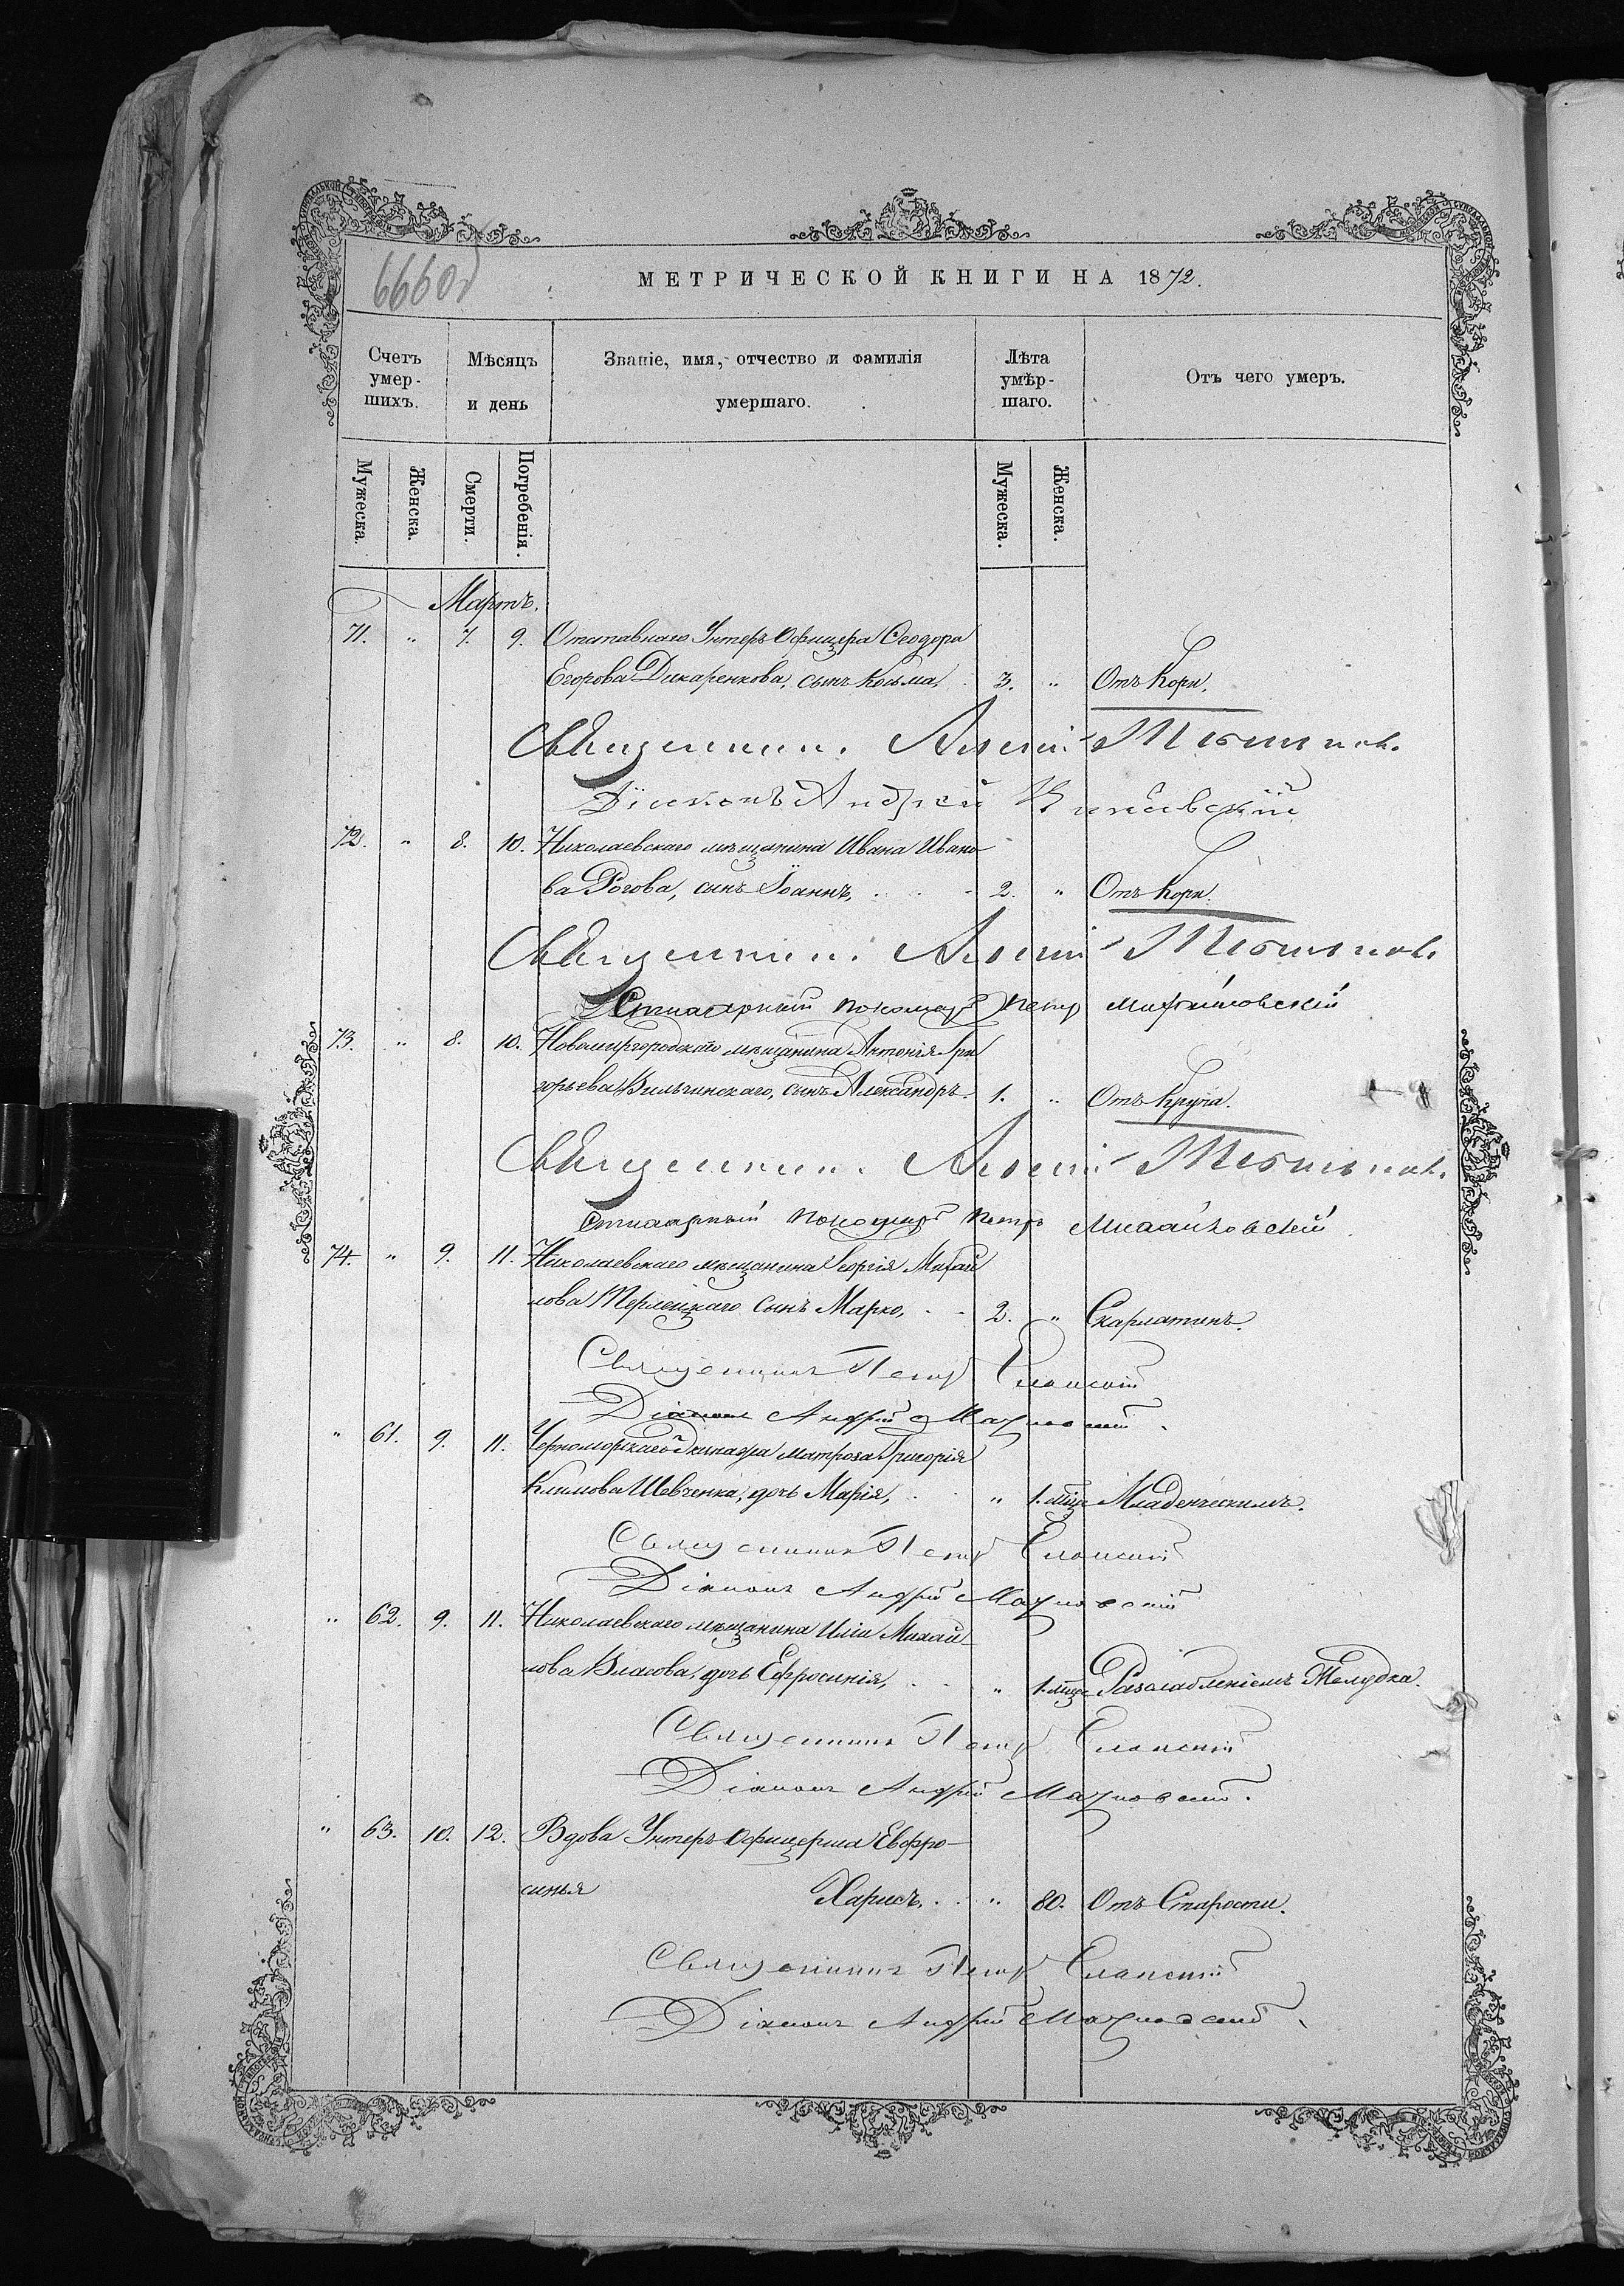 666об
МЕТРИЧЕСКОЙ КНИГИ НА 1872.
Счетъ умер-шихъ.
Мѣсяцъ и день
Званіе, имя, отчество и фамилія умершаго.
Лѣта умѣр-шаго.
Отъ чего умеръ.
Мужеска.
Женска.
Смерти.
Погребенія.
Мужеска.
Женска.
Мартъ.
71. " 7. 9. Отставнаго Унтеръ Офицера Ѳеодора
Егорова Дикаренкова, сынъ Косьма, 3. " Отъ Кори.
Священник.
Діаконъ Андрей
72. " 8. 10. Николаевскаго мѣщанина Ивана Ивано-
ва Рогова, сынъ Іоаннъ, 2. " Отъ Кори.
Священник.
Петр Михайловскій
73. " 8. 10. Новомиргородскаго мѣщанина Антонія Гри
горьева Вильчинскаго, сынъ Александръ. 1. " Отъ Крупа.
Священник.
Петръ Михайловский
74. " 9. 11. Николаевскаго мѣщанина Георгія Михай
лова Терлецкаго сынъ Марко, 2. " Скарлатинъ.
Священникъ Петр Еланскій
Діаконъ Андрей Махновскій.
" 61. 9. 11. Черноморскаго Экипажа матроза Григорія
Климова Шевченка, дочь Марія, " 1. мѣс. Младенческимъ.
Священникъ Петр Еланскій
Діаконъ Андрей Махновскій
" 62. 9. 11. Николаевскаго мѣщанина Иліи Михай
лова Власова, дочь Ефросинія, " 1. мѣс. Разслабленіемъ Желудка.
Священникъ Петр Еланскій
Діаконъ Андрей Махновскій.
" 63. 10. 12. Вдова Унтеръ-Офицерша Евфро-
синья Харисъ. " 80. Отъ Старости.
Священникъ Петр Еланскій
Діаконъ Андрей Махновскій.